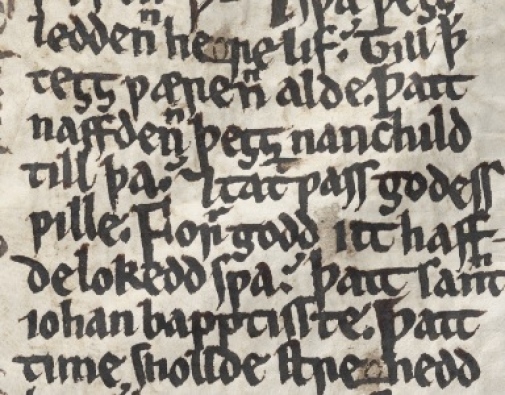 sƿa þeȝȝ
leddenn heore lif. Till þ
teȝȝ ƿærenn alde. Þatt
naffdenn þeȝȝ nan child
till þa. ⁊ tatt ƿass godess
ƿille. Forr godd itt haff-
de lokedd sƿa. Þatt sannt
iohan bapptisste. Þatt
time shollde streonedd